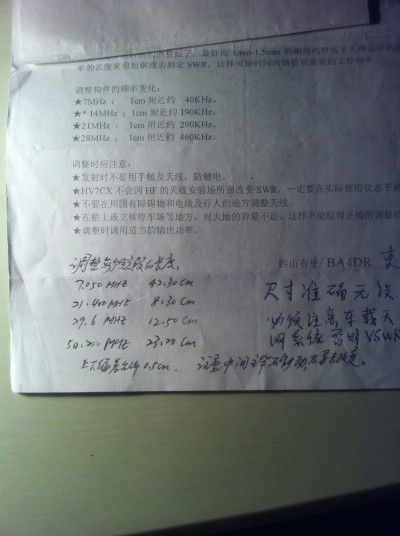 最好用 1mm-1.5mm 的铜线代替
率的长度来剪短铜线去测定 SWR，这样可短时间内调整到需要的工作频率。
调整构件的频率变化：
★7MHz： 1cm 附近约 40KHz。
★* 14MHz：1cm 附近约 190KHz。
★21MHz： 1cm 附近约 290KHz。
★28MHz： 1cm 附近约 460KHz。
调整时应注意：
★发射时不要用手触及天线，防触电。
★HV7CX 不会因 HF 的天线安装场所而改变 SWR，一定要在实际使用状态下调
★不要在周围有障碍物和电线及行人的地方调整天线。
★在桥上或立体停车场等地方，对大地的容量不足，这样不能取得正确的调整
★调整时调用适当的输出功率。
调整各个波段的长度
BA4DR
7.050 MHZ 42.30 cm
21.400 MHZ 8.30 cm
29.6 MHZ 12.50 cm
50.200 MHZ 23.20 cm
上下偏差允许 0.5cm. 注意中间
尺寸准确无误
必须注意车载天
网系统 VSWR